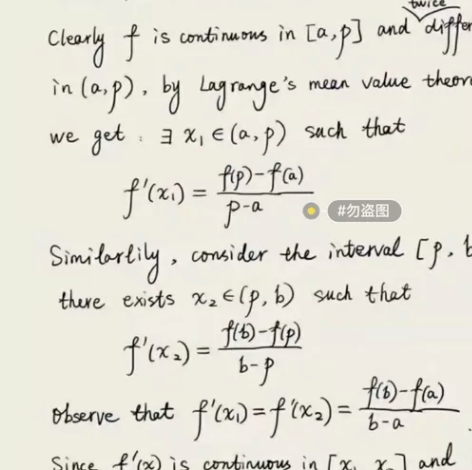 twice
Clearly f is continuous in [a,p] and differ
in (a,p), by Lagrange's mean value theor
we get : ∃ x₁ ∈ (a,p) such that
f'(x₁) = (f(p)-f(a))/(p-a)
#勿盗图
Similarlily, consider the interval [p, b
there exists x₂ ∈ (p, b) such that
f'(x₂) = (f(b)-f(p))/(b-p)
Observe that f'(x₁) = f'(x₂) = (f(b)-f(a))/(b-a)
Since f'(x) is continuous in [x₁, x₂] and